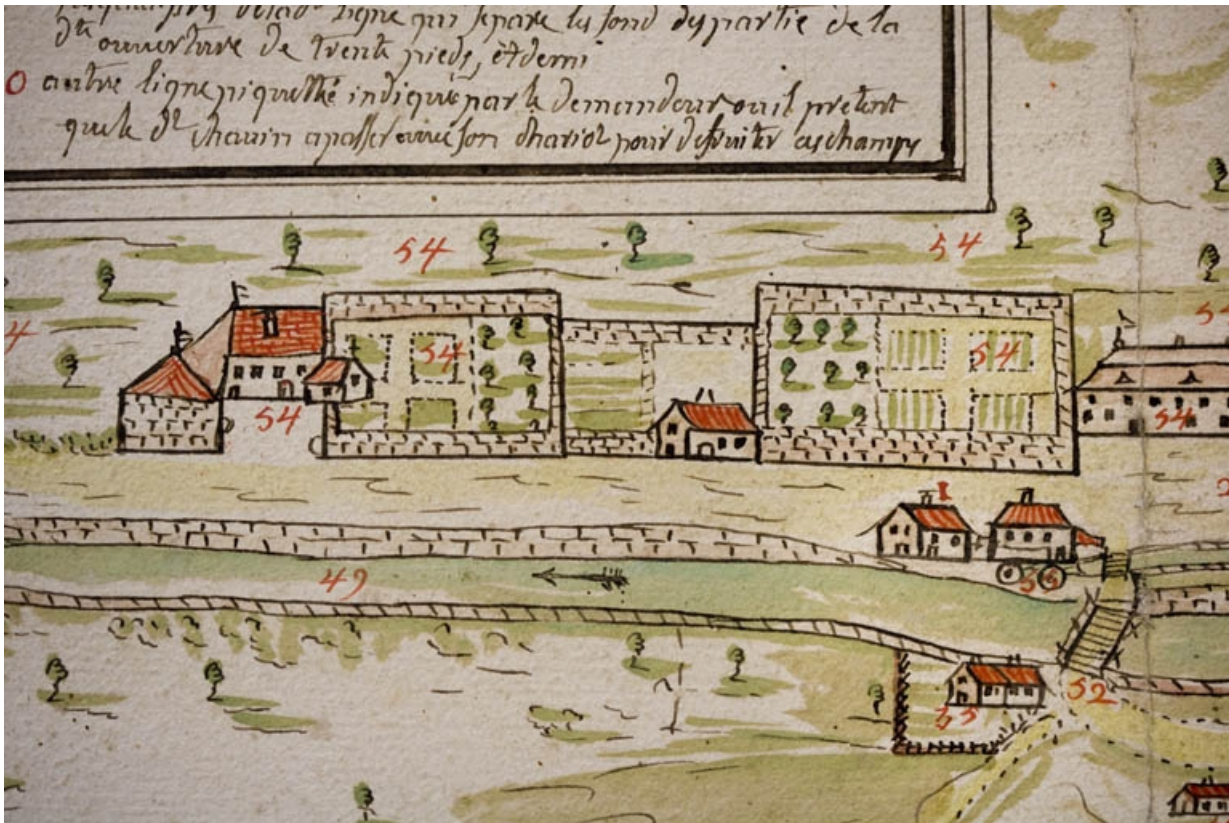 ligne qui separe les fond des partie de la
dte ouverture de trente pieds, et demi
O autre ligne piquettée indiqué par le demandeur ou il pretent
que le dt chauin a passer avec son chariot pour defruiter ces champs
54 54
54
54 54
54
49
52